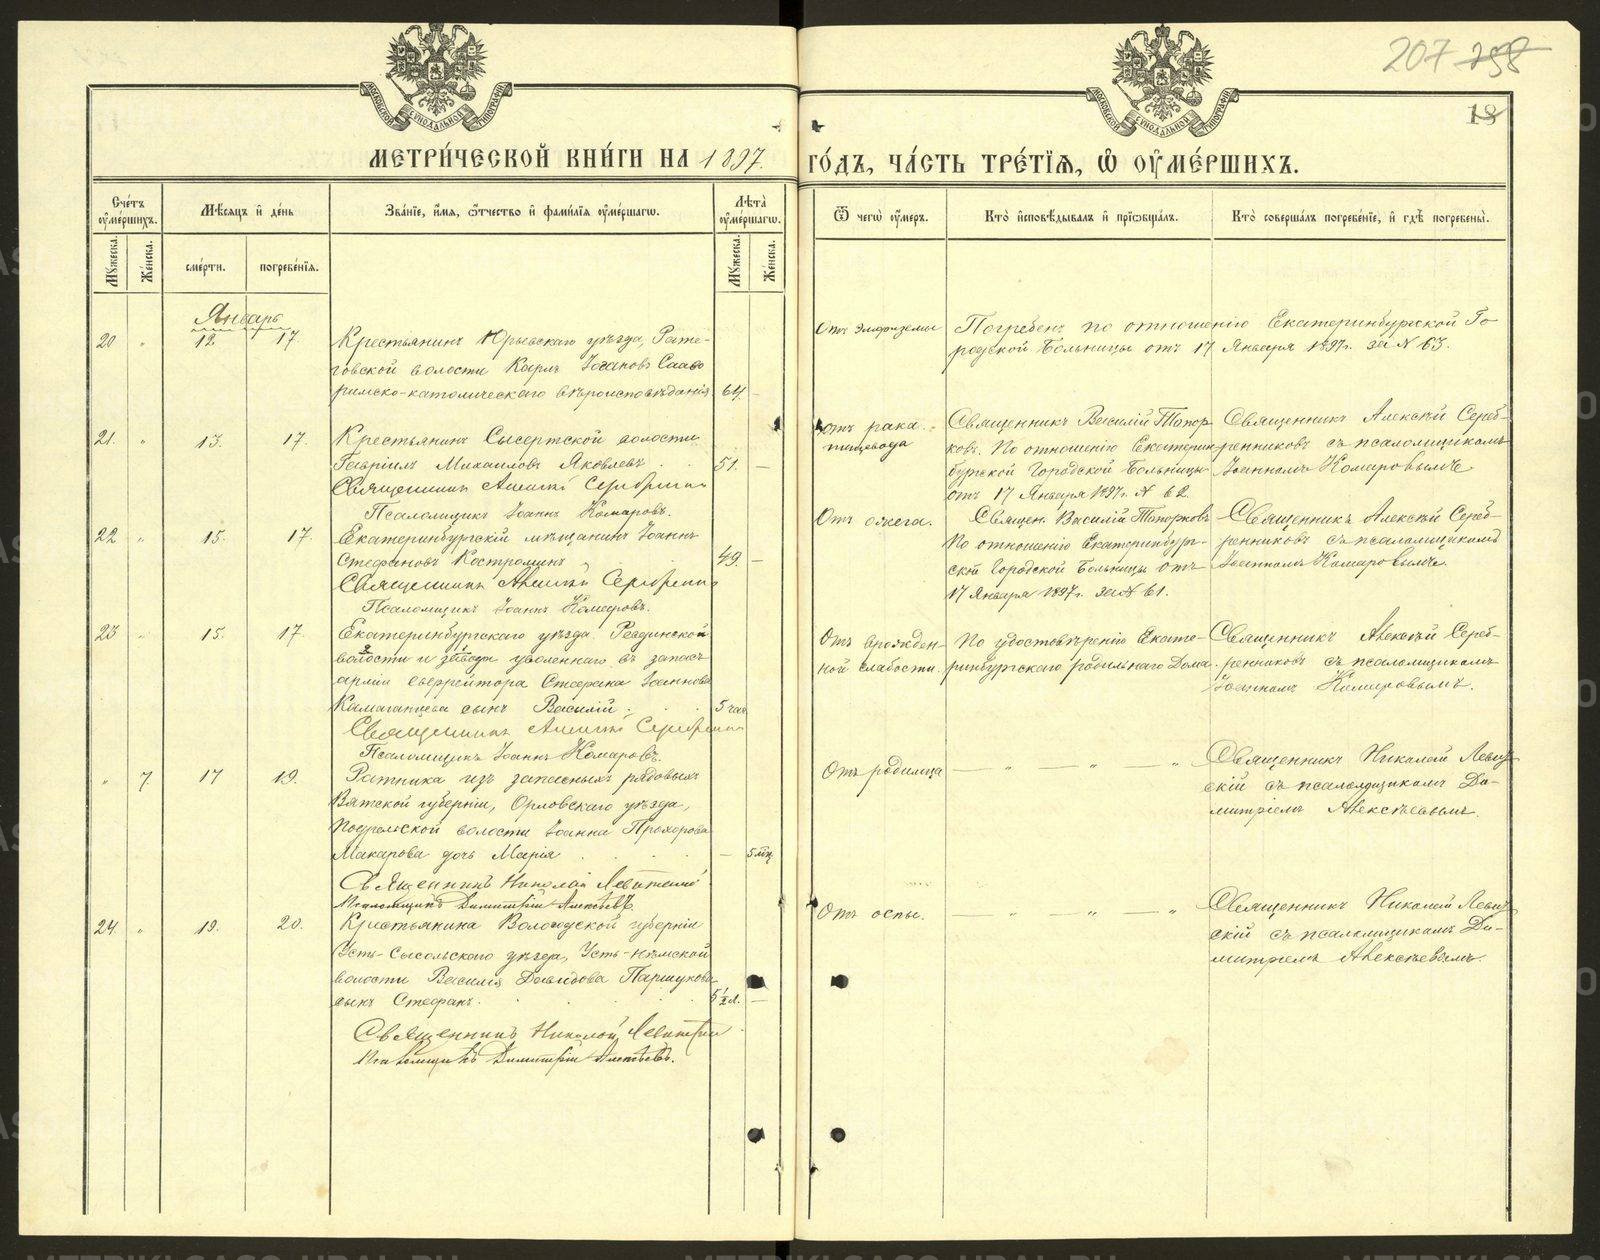 207 258
18
МОСКОВСКОЙ СѴНОДАЛЬНОЙ ТИПОГРАФІИ
МОСКОВСКОЙ СѴНОДАЛЬНОЙ ТИПОГРАФІИ
МЕТРИ́ЧЕСКОЙ КНИ́ГИ НА 1897. ГО́ДЪ, ЧА́СТЬ ТРЕ́ТІѦ, Ѡ҆ ОУ҆МЕ́РШИХЪ.
Сче́тъ оу҆ме́ршихъ.
Мѣ́сѧцъ и҆ де́нь
Зва́нїе, и҆́мѧ, ѻ҆́тчество и҆ фами́лїѧ оу҆ме́ршагѡ.
Лѣ́та оу҆ме́ршагѡ.
Ѿ чегѡ̀ оу҆́меръ.
Кто̀ и҆сповѣ́дывалъ и҆ прїѡбща́лъ.
Кто̀ соверша́лъ погребе́нїе, и҆ гдѣ̀ погребены̀.
Мꙋжеска.
Же́нска.
сме́рти.
погребе́нїѧ.
Мꙋжеска.
Же́нска.
Январь
20 " 12 17. Крестьянинъ Юрьевскаго уѣзда,
волости Карлъ
римско-католическаго вѣроисповѣданія 64 -
Отъ эмфиземы
Погребенъ по отношенію Екатеринбургской Го-
родской Больницы отъ 17 Января 1897г. за N 63.
21. " 13. 17. Крестьянинъ Сысертской волости
Гавріилъ Михаиловъ Яковлевъ . . 51. —
Священникъ Алексій Серебренниковъ
Псаломщикъ Іоаннъ Комаровъ.
отъ рака
пищевода
Священникъ Василій Топор-
ковъ. По отношенію Екатерин-
бургской Городской Больницы
отъ 17 Января 1897г. N 62.
Священникъ Алексѣй Сереб-
ренниковъ съ псаломщикомъ
Іоанномъ Комаровымъ
22 " 15. 17. Екатеринбургскій мѣщанинъ Іоаннъ
Стефановъ Костроминъ 49. —
Священникъ Алексій Серебренниковъ
Псаломщикъ Іоаннъ Комаровъ.
Отъ ожега.
Священ. Василій Топорковъ
По отношенію Екатеринбург-
ской Городской Больницы отъ
17 Января 1897г. за N 61.
Священникъ Алексѣй Сереб-
ренниковъ съ псаломщикомъ
Іоанномъ Комаровымъ.
23 " 15. 17. Екатеринбургскаго уѣзда Ревдинской
волости и завода уволеннаго въ запасъ
арміи ефрейтора Стефана Іоаннова
Камаганцева сынъ Василій . . . 5 час
Священникъ Алексій Серебренниковъ
Псаломщикъ Іоаннъ Комаровъ.
Отъ врожден-
ной слабости.
По удостовѣренію Екате-
ринбургскаго родильнаго Дома.
Священникъ Алексѣй Сереб-
ренниковъ съ псаломщикомъ
Іоанномъ Комаровымъ.
" 7. 17 19. Ратника изъ запасныхъ рядовыхъ
Вятской губерніи, Орловскаго уѣзда,
волости Іоанна Прохорова
Макарова дочь Марія . . . . — 5 мѣс
Священникъ Николай Левитскій
Псаломщикъ Димитрій Алексѣевъ
Отъ родимца — " — " — "
Священникъ Николай Левит-
скій съ псаломщикомъ Ди-
митріемъ Алексѣевымъ.
24 " 19. 20. Крестьянина Вологодской губерніи
Усть-Сысольскаго уѣзда, Усть-Нѣмской
волости Василія Давыдова Паршукова
сынъ Стефанъ. . . . . 5 ½ л. —
Священникъ Николай Левитскій
Псаломщикъ Димитрій Алексѣевъ.
Отъ оспы. — " — " — "
Священникъ Николай Левит-
скій съ псаломщикомъ Ди-
митріемъ Алексѣевымъ.